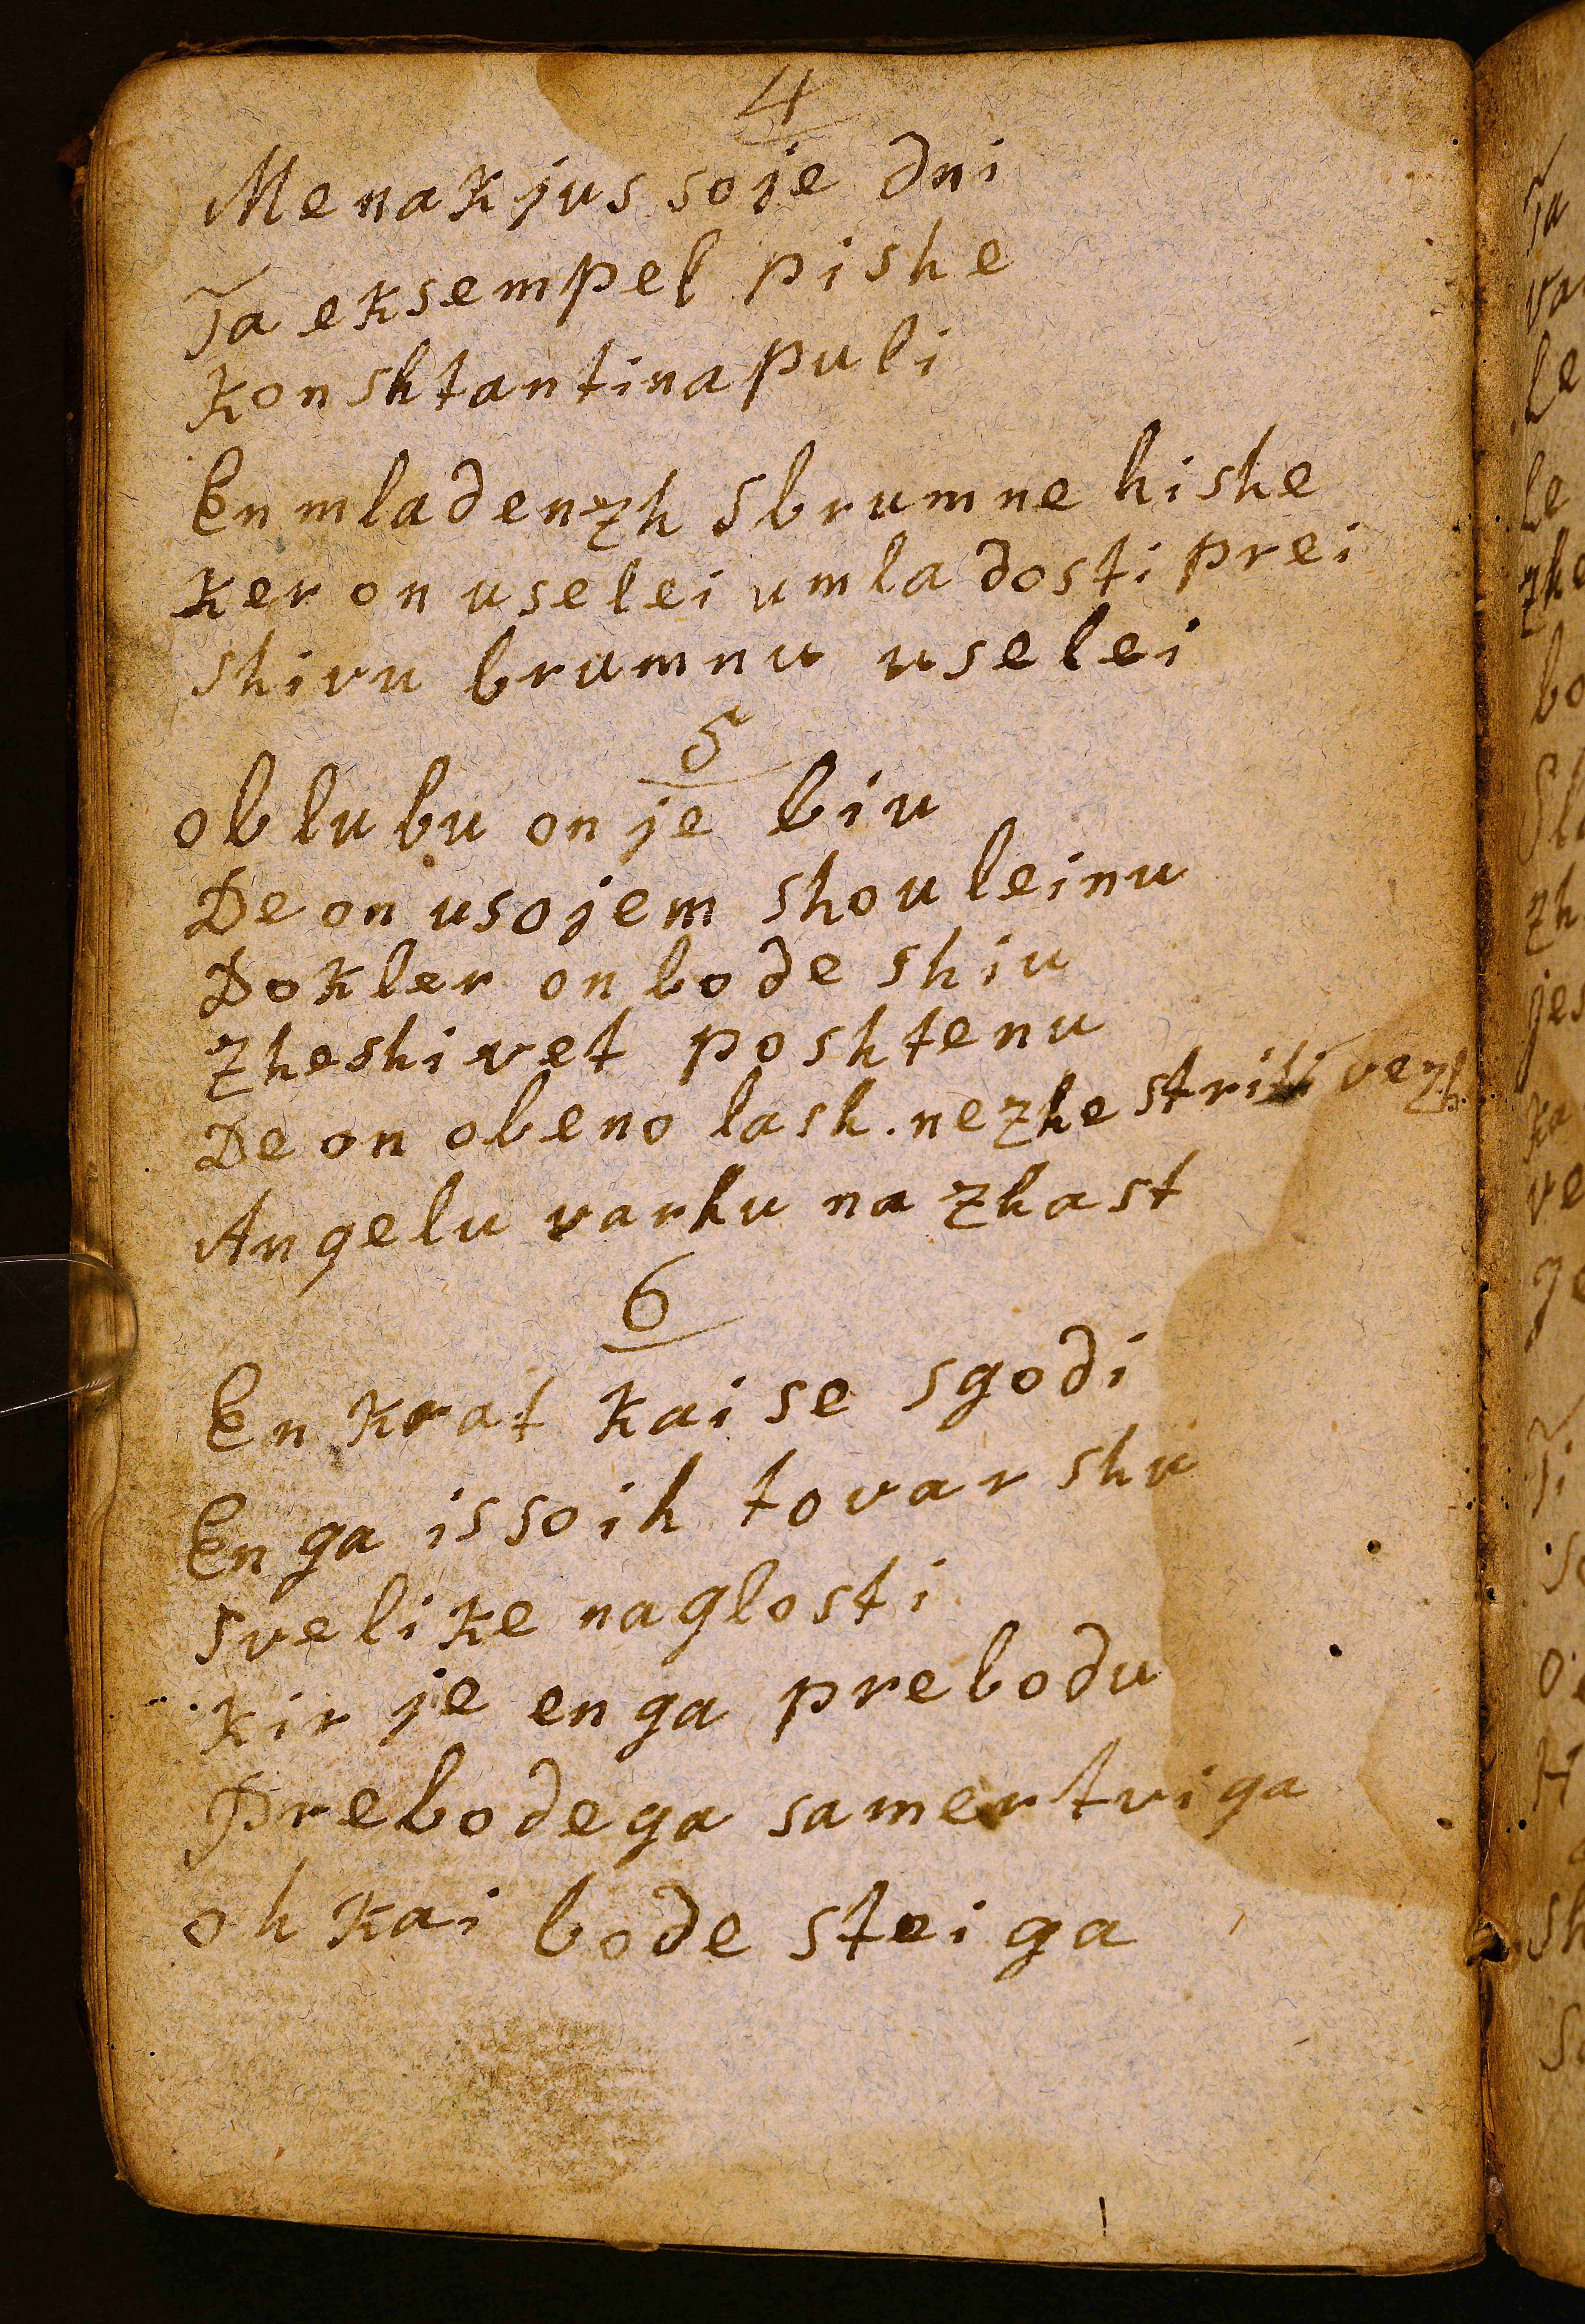 4
Menakjus soje dni
Ta eksempel pishe
Konshtantinapuli
En mladenzh sbrumne hishe
Ker on uselei umladosti prei
shivu brumnu uselei
5
oblubu on je biu
De on usojem shouleinu
Dokler on bode shiu
Zheshivet poshtenu
De on obeno lash. nezhe striti vezh
Angelu varhu na zhast
6
En krat kai se sgodi
En ga issoih tovarshu
svelike naglosti
Kir je en ga prebodu
Prebodega samertviga
oh kai bode steiga